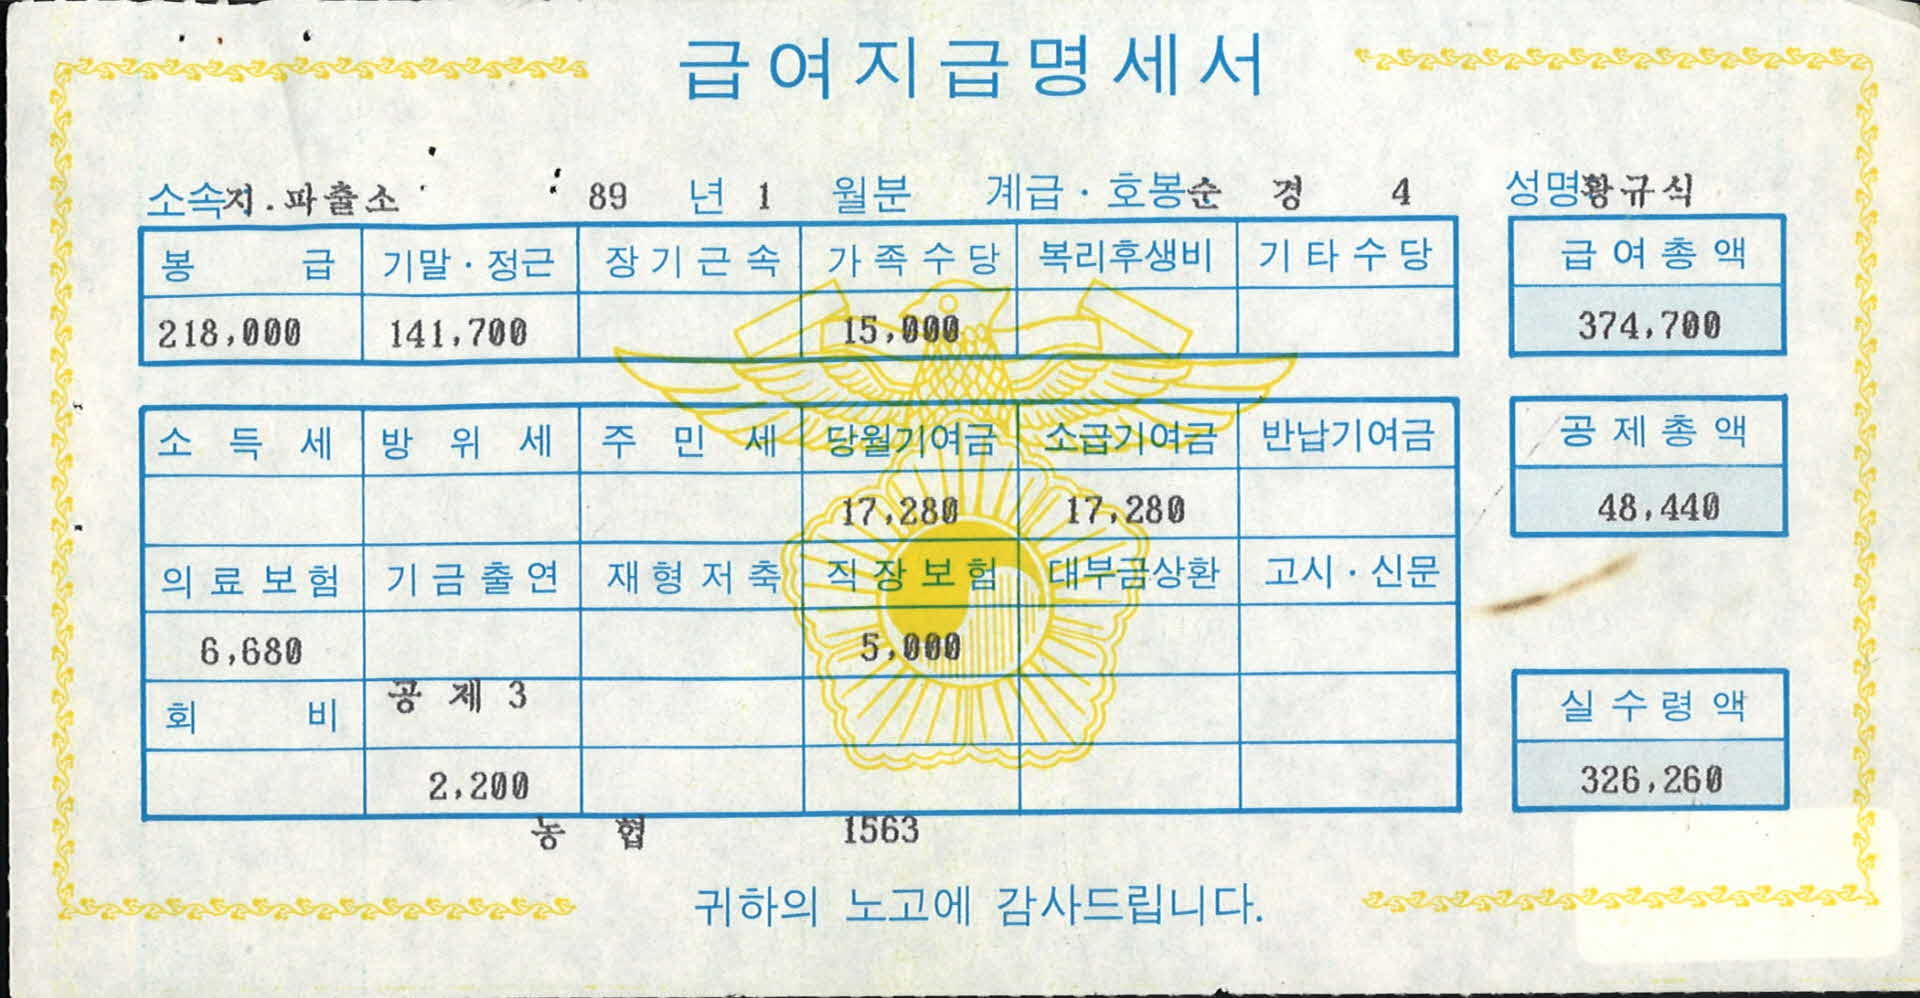 급여지급명세서
소속 지.파출소 89 년 1 월분 계급·호봉 순 경 4 성명 황규식
봉 급 기말·정근 장기근속 가족수당 복리후생비 기타수당 급여총액
218,000 141,700 15,000 374,700
소 득 세 방 위 세 주 민 세 당월기여금 소급기여금 반납기여금 공제총액
17,280 17,280 48,440
의료보험 기금출연 재형저축 직장보험 대부금상환 고시·신문
6,680 5,000
회 비 공 제 3 실수령액
2,200 326,260
농 협 1563
귀하의 노고에 감사드립니다.